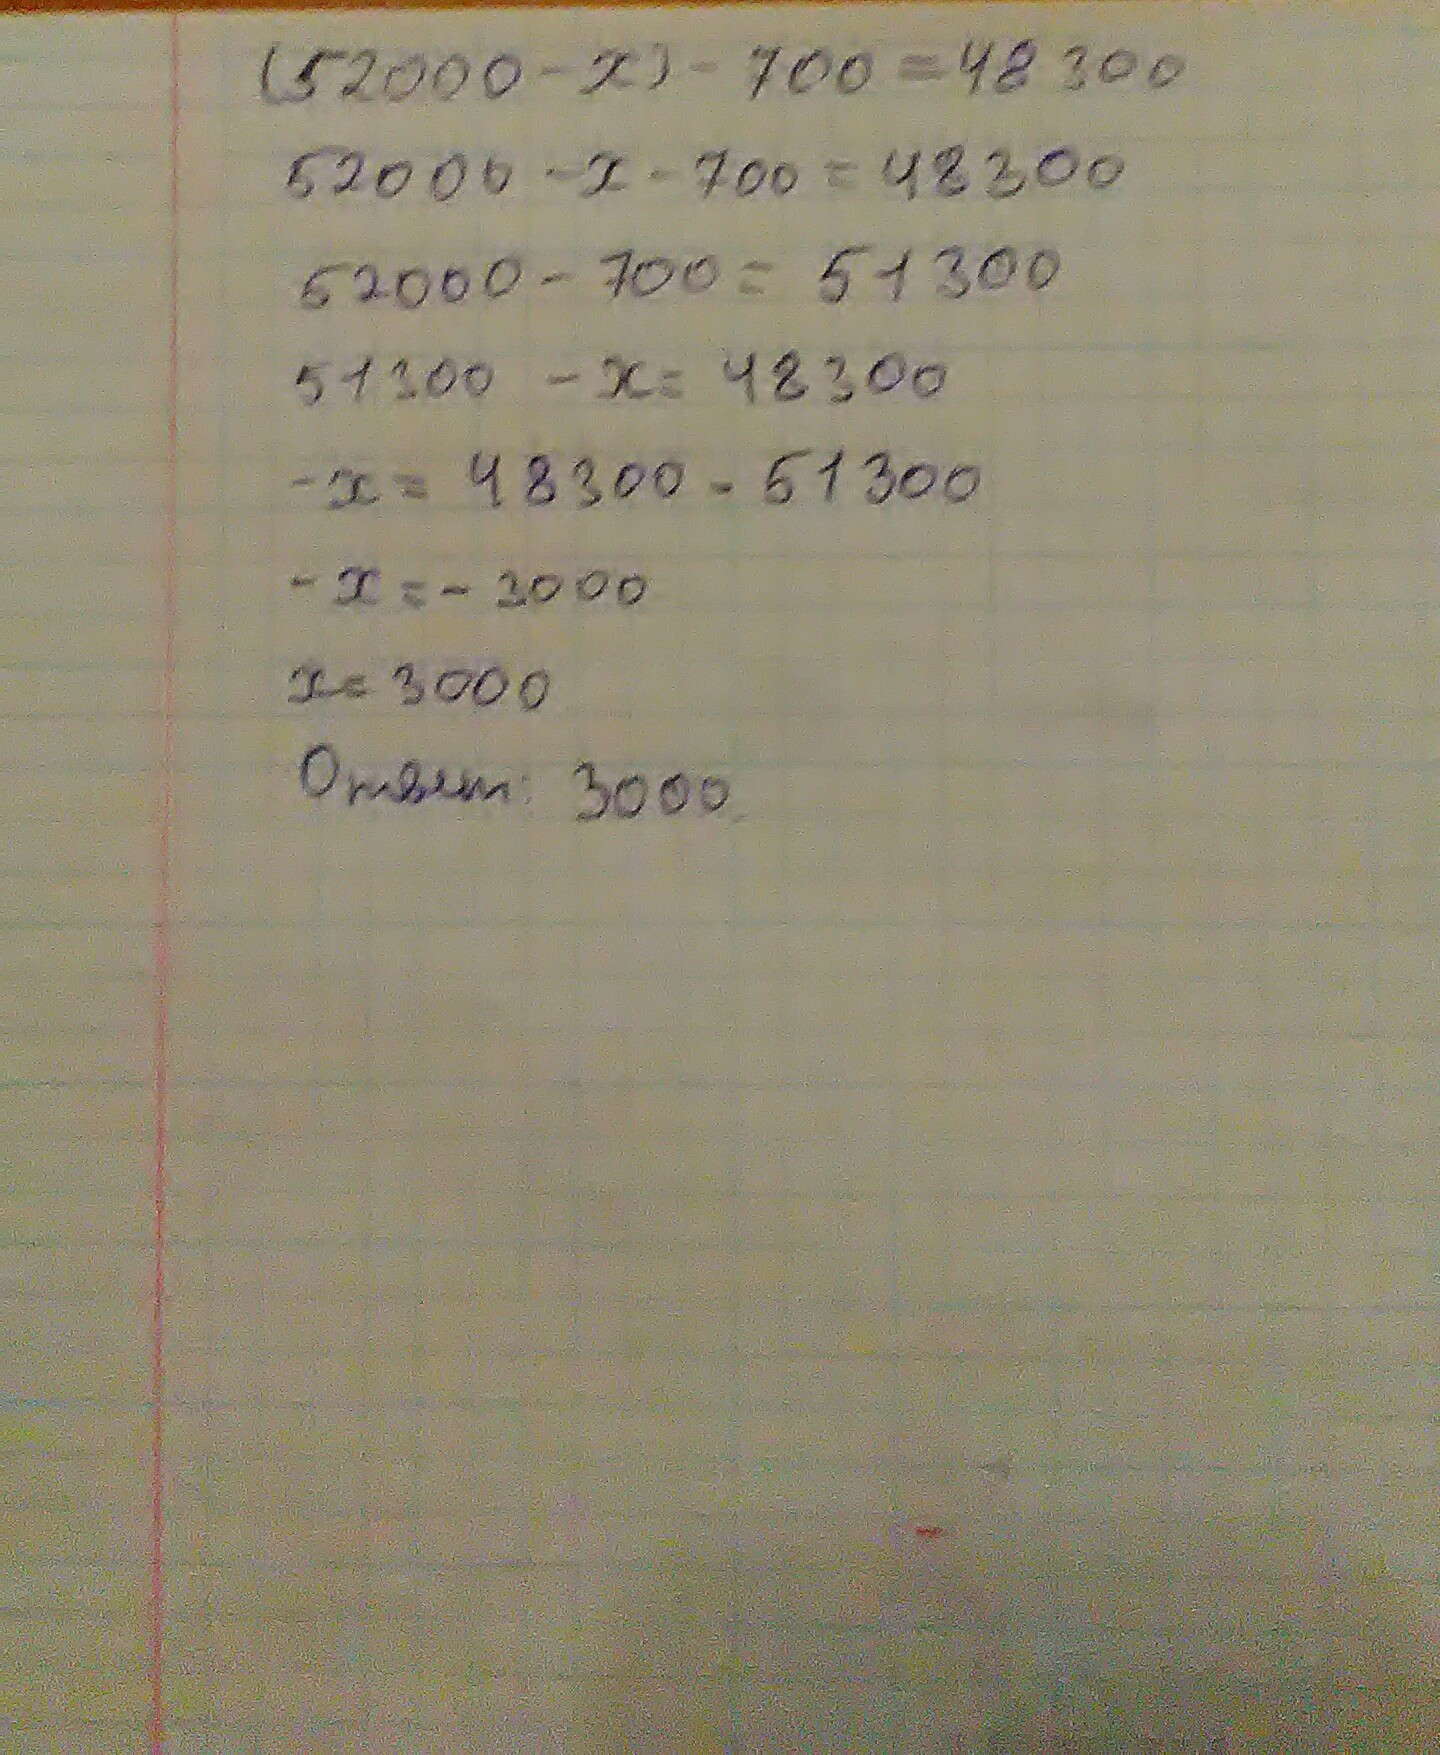 (52000 - x) - 700 = 48300
52000 - x - 700 = 48300
52000 - 700 = 51300
51300 - x = 48300
- x = 48300 - 51300
- x = - 3000
x = 3000
Ответ: 3000.